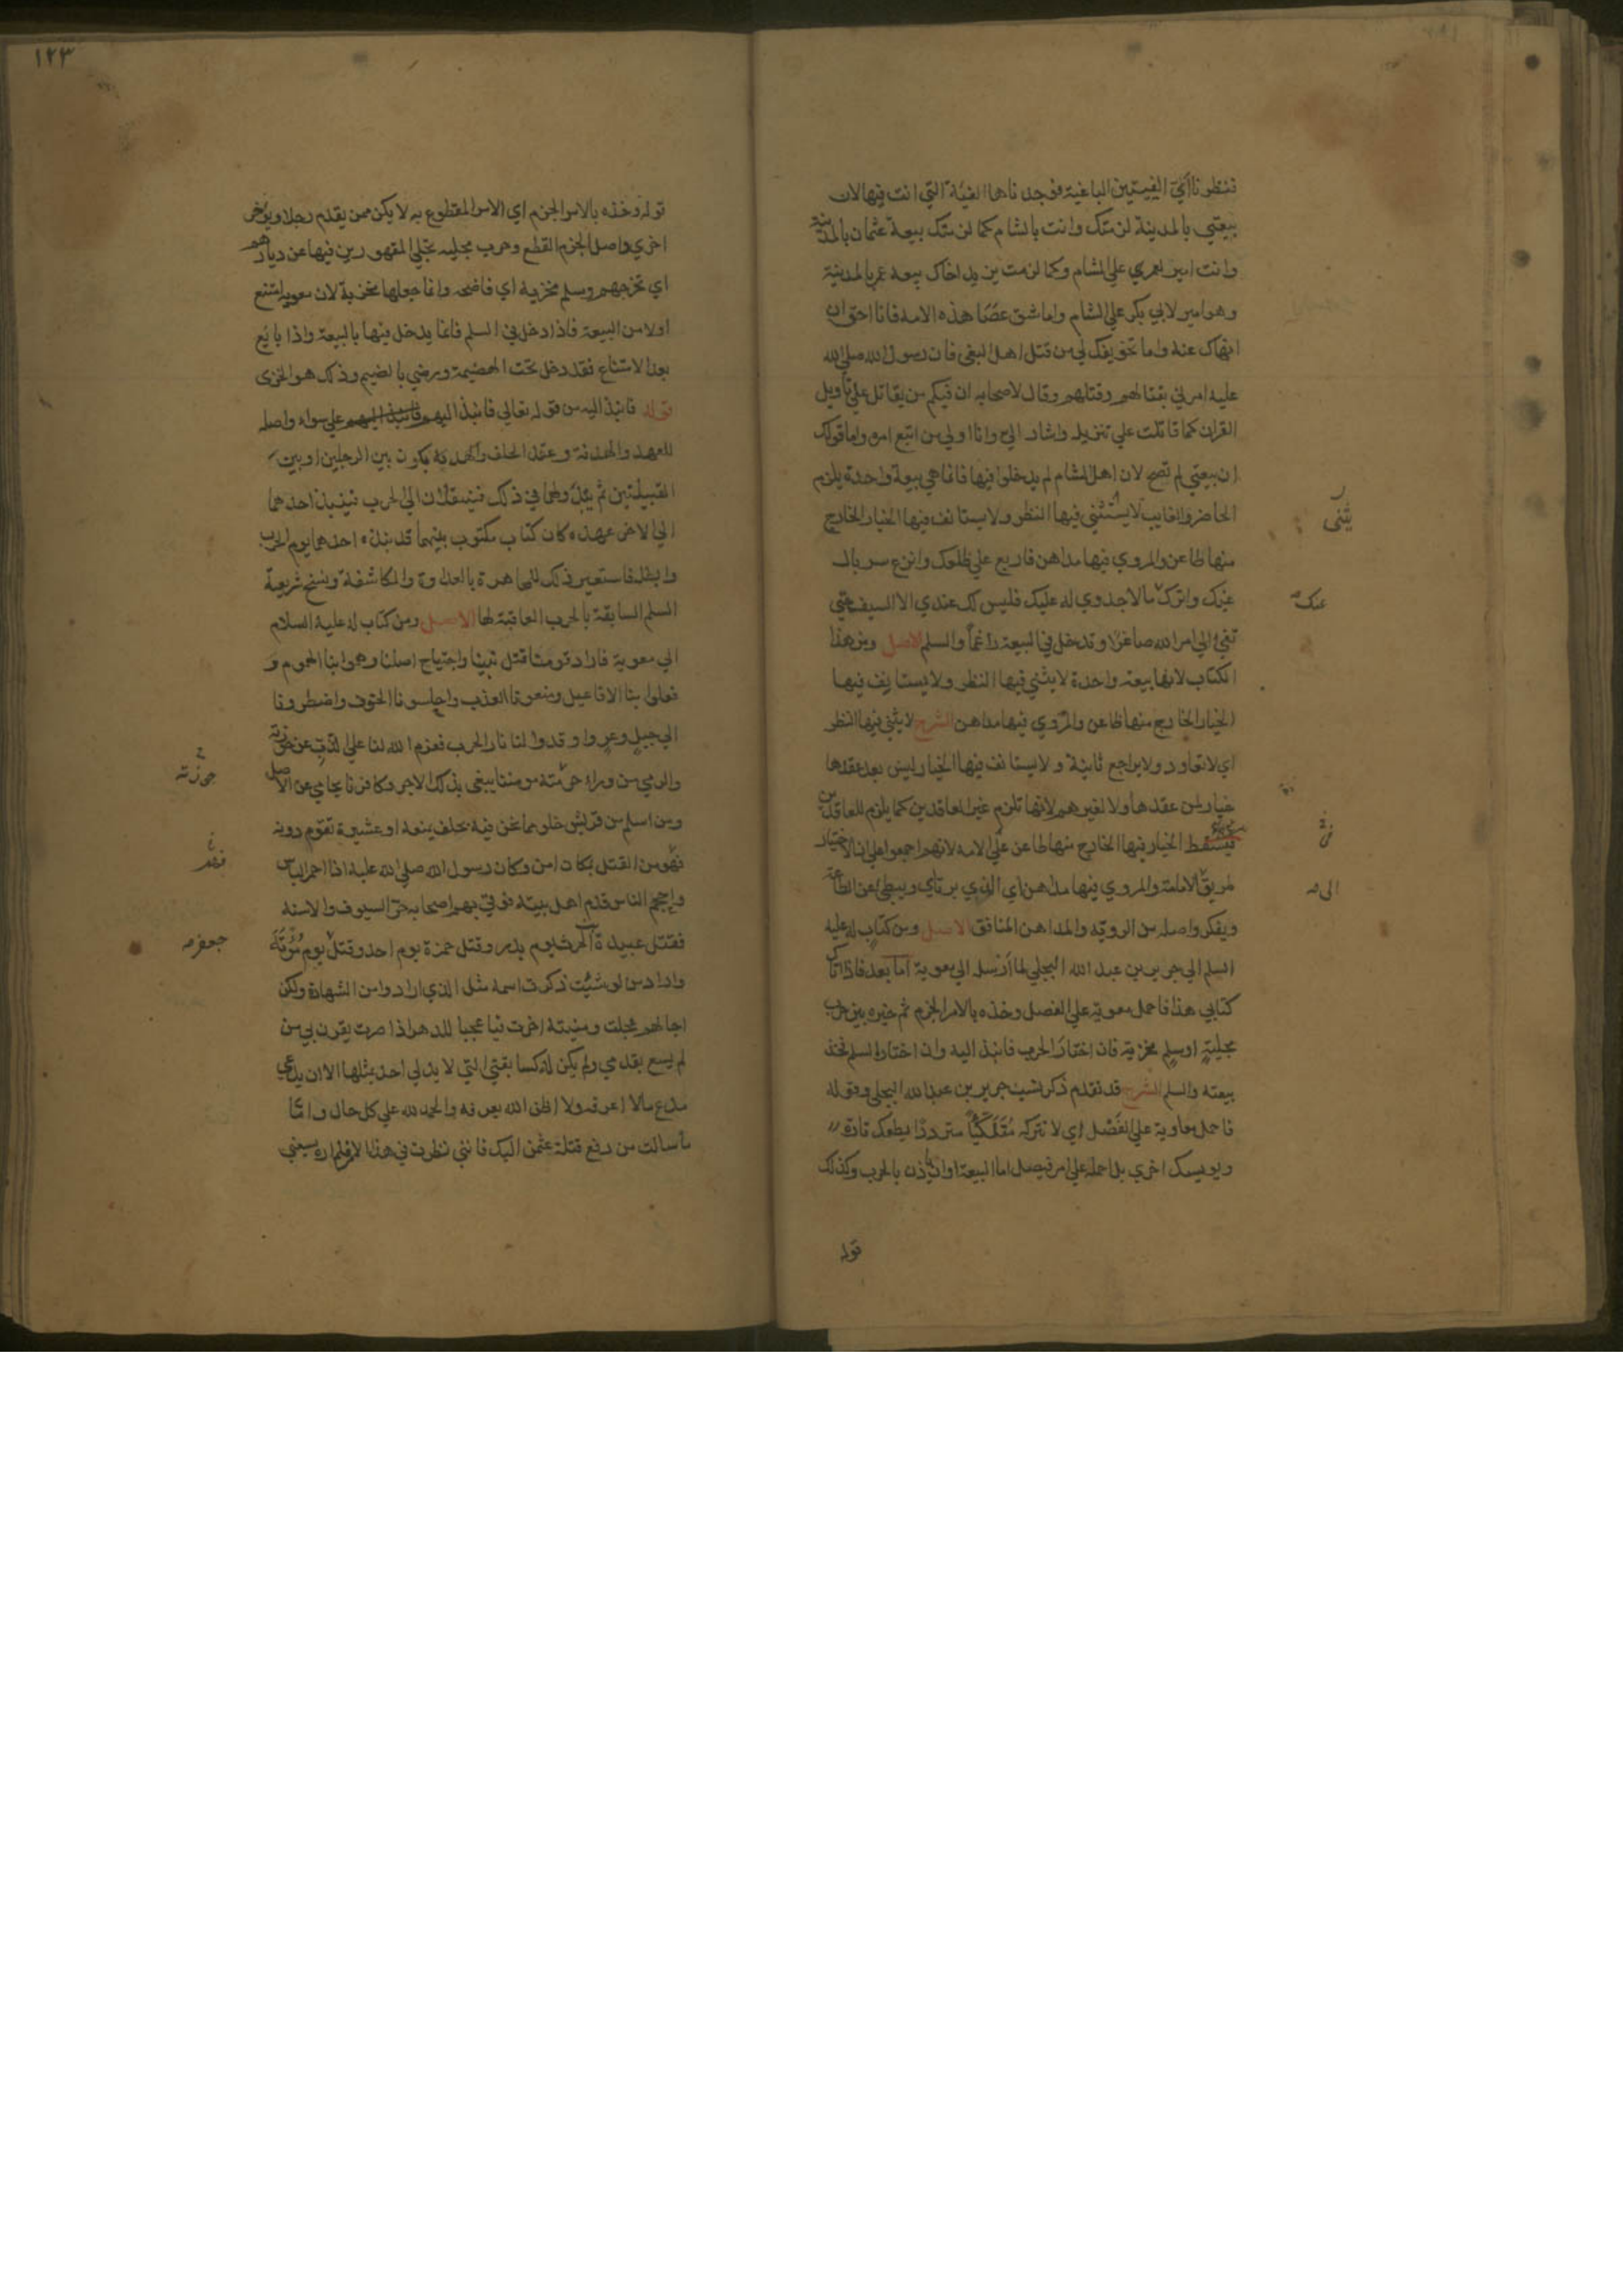 فنظرنا أي الفيتين الباغية فوجدناها الفية التي انت فيها لان
بيعتي بالمدينة لزمتك وانت بالشام كما لزمتك بيعة عثمان بالمدينة
وانت امير لعمري علي الشام وكما لزمت يزيد اخاك بيعة عمر بالمدينة
وهو امير لابي بكر علي الشام واما شق عصا هذه الامه فانا احق ان
انهاك عنه واما تخويفك لي من قتل اهل البغي فان رسول الله صلي الله
عليه امرني بقتالهم وقتلهم وقال لاصحابه ان فيكم من يقاتل علي تاويل
القران كما قاتلت علي تنزيله واشار الي وانا اولي من اتبع امره واما قولك
ان بيعتي لم تصح لان اهل الشام لم يدخلوا فيها فانما هي بيعة واحدة يلزم
الحاضر والغايب لا يستثني فيها النظر ولا يستانف فيها الخيار الخارج
يثنى
منها طاعن والمروي فيها مداهن فاربع علي ظلعك وانزع سربال
غيك واترك مالا جدوي له عليك فليس لك عندي الا السيف حتي
عنك
تفئ الي امر الله صاغرا وتدخل في البيعة راغما والسلم الاصل ومن هذا
الكتاب لانها بيعة واحدة لا يثني فيها النظر ولا يستايف فيها
الخيار الخارج منها طاعن والمروي فيها مداهن الشرح لا يثني فيها النظر
اي لا تعاود ولا يراجع ثانية ولا يستانف فيها الخيار ليس بعد عقدها
خيار لمن عقدها ولا لغيرهم لانها تلزم غير العاقدين كما يلزم للعاقدين
فيسقط الخيار فيها الخارج منها طاعن علي الامه لانهم اجمعوا علي ان الاختيار
طريق الامامة والمروي فيها مداهن اي الذي يرتاي ويبطئ عن الطاعة
الى
ويفكر واصله من الروية والمداهن المنافق الاصل ومن كتاب له عليه
السلم الي جرير بن عبد الله البجلي لما أرسله الي معوية اما بعد فاذا اتاك
كتابي هذا فاحمل معوية علي الفصل وخذه بالامر الجزم ثم خيره بين حرب
مجلية او سلم مخزية فان اختار الحرب فانبذ اليه وان اختار السلم فخذ
بيعته والسلم الشرح قد تقدم ذكر نسب جرير بن عبد الله البجلي وقوله
فاحمل معاوية علي الفصل اي لا تتركه متلكيا مترددا يطمعك تارة
ويويسك اخري بل احمله علي امر فيصل اما البيعة او ان يأذن بالحرب وكذلك
قوله
١٢٣
قوله وخذه بالامر الجزم اي الامر المقطوع به لا يكن ممن يقدم رجلا ويؤخر
اخري واصل الجزم القطع وحرب مجليه تجلي المقهورين فيها عن ديارهم
اي تخرجهم وسلم مخزية اي فاضحه وانما جعلها مخزية لان معويه امتنع
اولا من البيعة فاذا دخل في السلم فانما يدخل فيها بالبيعة واذا بايع
بعد الامتناع فقد دخل تحت الهضيمة ورضي بالضيم وذلك هو الخزى
قوله فانبذ اليه من قوله تعالي فانبذ اليهم فانبذ اليهم علي سواء واصله
للعهد والهدنة وعقد الحلف والهدية يكون بين الرجلين او بين
القبيلتين ثم يبدو لهما في ذلك فينتقلان الي الحرب فينبذ احدهما
الي الاخر عهده كان كتاب مكتوب بينهما قد نبذه احدهما يوم الحرب
وابطله فاستعير ذلك للمجاهرة بالعداوة والمكاشفة ونسخ شريعة
السلم السابقة بالحرب العاقبة لها الاصل ومن كتاب له عليه السلام
الي معوية فاراد قومنا قتل نبينا واجتياح اصلنا وهموا بنا الهموم و
فعلوا بنا الافاعيل ومنعونا العذب واحلسونا الخوف واضطرونا
الي جبل وعر واوقدوا لنا نار الحرب فعزم الله لنا علي الذب عن حوزته
والرمي من وراء حرمته مومننا يبغي بذلك الاجر وكافرنا يحامي عن الاصل
حوزته
ومن اسلم من قريش خلو مما نحن فيه بحلف يمنعه او عشيرة تقوم دونه
فهو من القتل بمكان امن وكان رسول الله صلي الله عليه اذا احمر الباس
واحجم الناس قدم اهل بيته فوقي بهم اصحابه حر السيوف والاسنه
فقتل عبيدة بن الحرث يوم بدر وقتل حمزة يوم احد وقتل يوم مؤتة
جعفر
واراد من لو شئت ذكرت اسمه مثل الذي ارادوا من الشهادة ولكن
اجالهم عجلت ومنيته اخرت فيا عجبا للدهر اذا صرت يقرن بي من
لم يسع بقدمي ولم يكن له كسابقتي التي لا يدلي احد بمثلها الا ان يدعي
مدع مالا اعرفه ولا اظن الله يعرفه والحمد لله علي كل حال واما
ما سالت من دفع قتلة عثمن اليك فانني نظرت في هذا الامر فلم اره يسعني